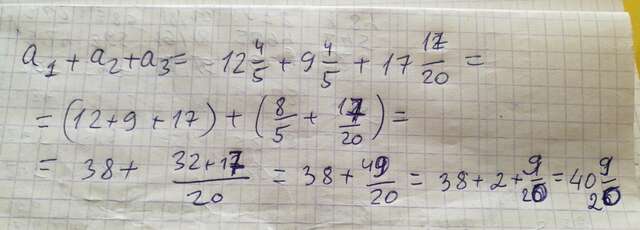 a₁ + a₂ + a₃ = 12 4/5 + 9 4/5 + 17 17/20 =
= (12 + 9 + 17) + (8/5 + 17/20) =
= 38 + (32+17)/20 = 38 + 49/20 = 38 + 2 + 9/20 = 40 9/20